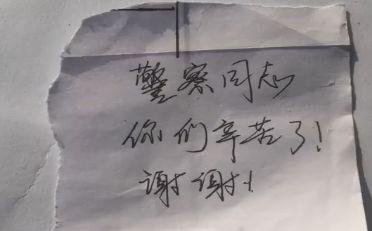 警察同志
你们辛苦了!
谢谢!